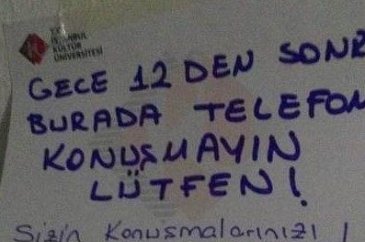 T.C.
İSTANBUL
KÜLTÜR
ÜNİVERSİTESİ
GECE 12 DEN SONR
BURADA TELEFON
KONUŞMAYIN
LÜTFEN!
Sizin Konuşmalarınızı